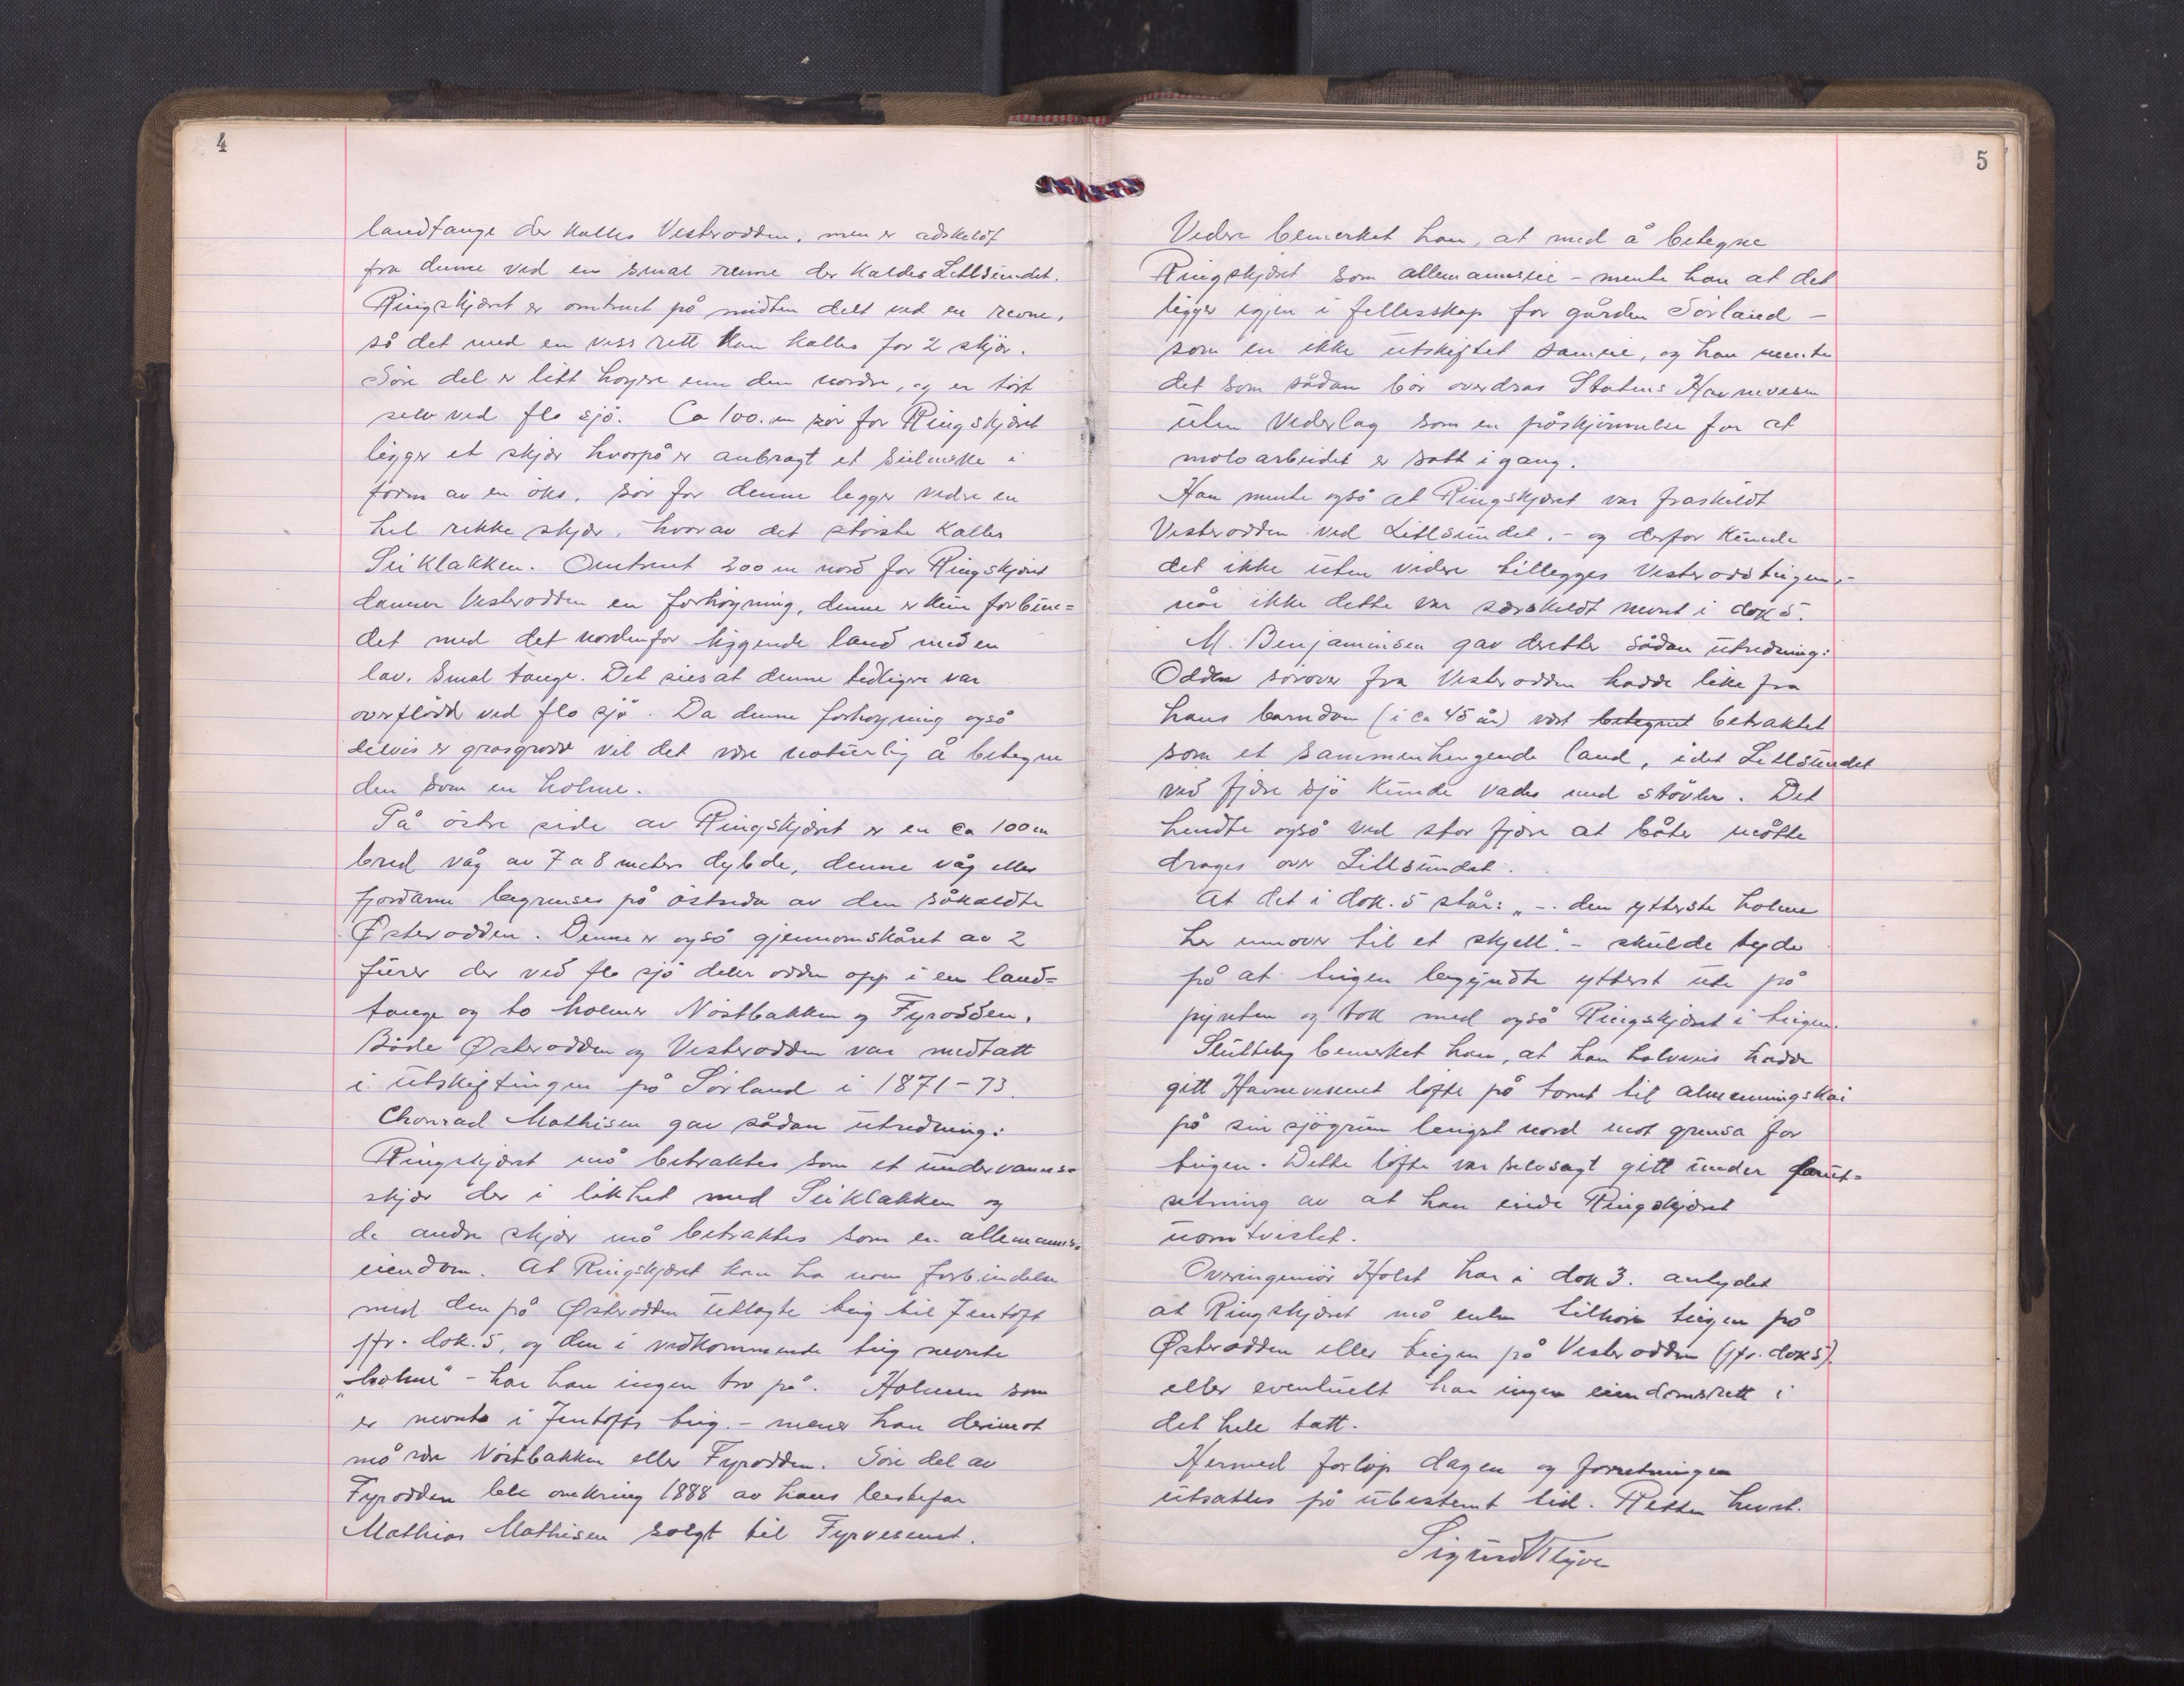 4
landtange der kalles Vesterodden, men er adskeldt
fra denne ved en smal renne der kaldes Litlsundet.
Ringskjæret er omtrent på midten delt ved en revne,
så det med en viss rett kan kalles for 2 skjær.
Söre del er litt höyere enn den nordre, og er tört
selv ved flo sjö. Ca 100. m sör for Ringskjæret
ligger et skjær hvorpå er anbragt et seilmerke i
form av en öks. Sör for denne legger videre en
hel rekke skjær, hvorav det störste kalles
Seiklakken. Omtrent 200 m nord for Ringskjæret
danner Vesterodden en forhöyning, denne er kun forbun=
det med det nordenfor liggende land med en
lav, smal tange. Det sies at denne tidligere var
overflödd ved flo sjö. Da denne forhöyning også
delvis er grasgrodd vil det være naturlig å betegne
den som en holme.
På östre side av Ringskjæret er en ca 100 m
bred våg av 7 a 8 meters dybde, denne våg eller
fjordarm begrenses på östsiden av den såkaldte
Østerodden. Denne er også gjennomskåret av 2
furer der ved flo sjö deler odden opp i en land=
tange og to holmer Nöstbakken og Fyrodden.
Både Østerodden og Vesterodden var medtatt
i utskiftingen på Sörland i 1871-73.
Chonrad Mathisen gav sådan utredning:
Ringskjæret må betraktes som et undervanns=
skjær der i likhet med Seiklakken og
de andre skjær må betraktes som en allemanns=
eiendom. At Ringskjæret kan ha noen forbindelse
med den på Østerodden utlagte teig til Jentoft
jfr. dok. 5, og den i vedkommende teig nevnte
„holme" - har han ingen tro på. Holmen som
er nevnte i Jentofts teig. - mener han derimot
må være Nöstbakken eller Fyrodden. Söre del av
Fyrodden ble omkring 1888 av hans bestefar
Mathias Mathisen solgt til Fyrvesenet.
5
Videre bemerket han, at med å betegne
Ringskjæret som allemannseie - mente han at det
ligger igjen i fellesskap for gården Sörland -
som en ikke utskiftet sameie, og han mente
det som sådan bör overdras Statens Havnevesen
uten vederlag som en påskjönnelse for at
moloarbeidet er satt i gang.
Han mente også at Ringskjæret var fraskildt
Vesterodden ved Litlsundet. - og derfor kunde
det ikke uten videre tillegges Vesteroddteigen, -
når ikke dette var særskeldt nevnt i dok 5.
M. Benjaminsen gav deretter sådan utredning:
Odden sörover fra Vesterodden hadde like fra
hans barndom (i ca 45 år) vært betegnet betraktet
som et sammenhengende land, idet Litlsundet
ved fjære sjö kunde vades med stövler. Det
hendte også ved stor fjære at båter måtte
drages over Litlsundet.
At det i dok. 5 står: „-. den ytterste holme
her innover til et skjell". - skulde tyde
på at teigen begyndte ytterst ute på
pynten og tok med også Ringskjæret i teigen.
Sluttelig bemerket han, at han halvveis hadde
gitt Havnevesenet löfte på tomt til almenningskai
på sin sjögrunn lengst nord mot grensa for
teigen. Dette löfte var selvsagt gitt under forut=
setning av at han eide Ringskjæret
uomtvistet.
Overingeniör Holst har i dok 3. antydet
at Ringskjæret må enten tilhöre teigen på
Østerodden eller teigen på Vesterodden (jfr. dok 5).
eller eventuelt har ingen eiendomsrett i
det hele tatt.
Hermed forlöp dagen og forretningen
utsattes på ubestemt tid. Retten hevet.